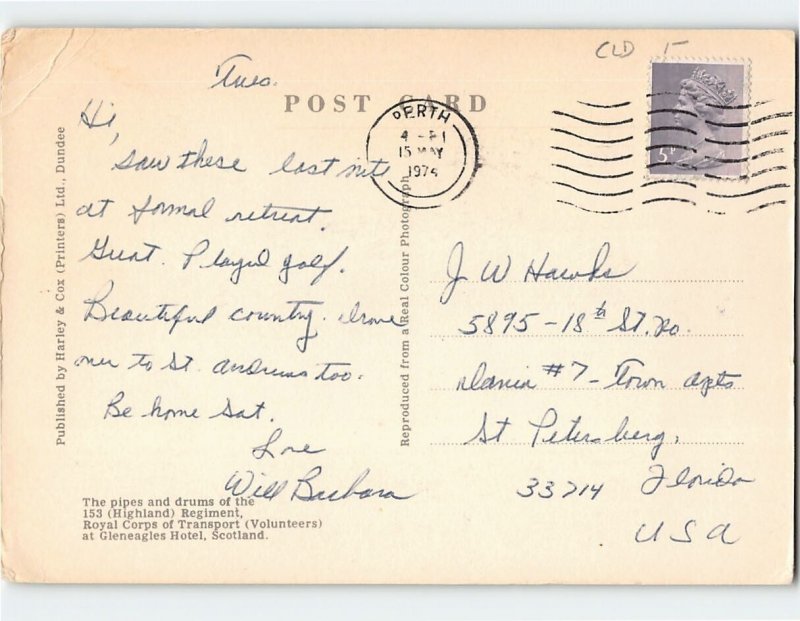 CLD
Tues.
POST CARD
PERTH
15 MAY
1974
5P
Hi,
Saw these last nite
at formal retreat.
Great. Played golf.
Beautiful country. Drove
over to St. Andrews too.
Be home Sat.
Love
Will Barbara
J W Hawks
5895 - 18th St. No.
#7 - Town Apts
St Petersburg,
33714 Florida
USA
Published by Harley & Cox (Printers) Ltd., Dundee
Reproduced from a Real Colour Photograph
The pipes and drums of the
153 (Highland) Regiment,
Royal Corps of Transport (Volunteers)
at Gleneagles Hotel, Scotland.